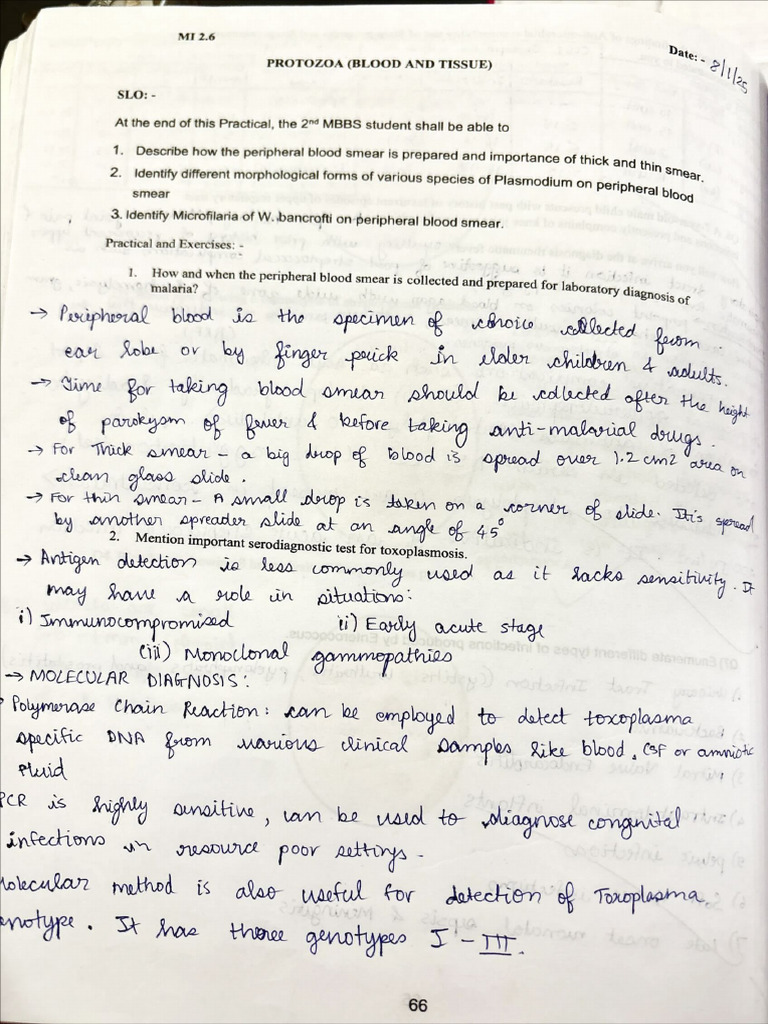 MI 2.6
Date: - 8/1/25
PROTOZOA (BLOOD AND TISSUE)
SLO: -
At the end of this Practical, the 2nd MBBS student shall be able to
1. Describe how the peripheral blood smear is prepared and importance of thick and thin smear.
2. Identify different morphological forms of various species of Plasmodium on peripheral blood
smear
3. Identify Microfilaria of W. bancrofti on peripheral blood smear.
Practical and Exercises: -
1. How and when the peripheral blood smear is collected and prepared for laboratory diagnosis of
malaria?
→ Peripheral blood is the specimen of choice collected from
ear lobe or by finger prick in older children & adults.
→ Time for taking blood smear should be collected after the height
of paroxysm of fever & before taking anti-malarial drugs.
→ For Thick smear – a big drop of blood is spread over 1.2 cm2 area on
clean glass slide.
→ For thin smear – A small drop is taken on a corner of slide. It is spread
by another spreader slide at an angle of 45°
2. Mention important serodiagnostic test for toxoplasmosis.
→ Antigen detection is less commonly used as it lacks sensitivity. It
may have a role in situations:
i) Immunocompromised ii) Early acute stage
(iii) Monoclonal gammopathies
→ MOLECULAR DIAGNOSIS:
Polymerase Chain Reaction: can be employed to detect toxoplasma
specific DNA from various clinical samples like blood, CSF or amniotic
fluid
PCR is highly sensitive, can be used to diagnose congenital
infections in resource poor settings -
Molecular method is also useful for detection of Toxoplasma
genotype. It has three genotypes I – III.
66